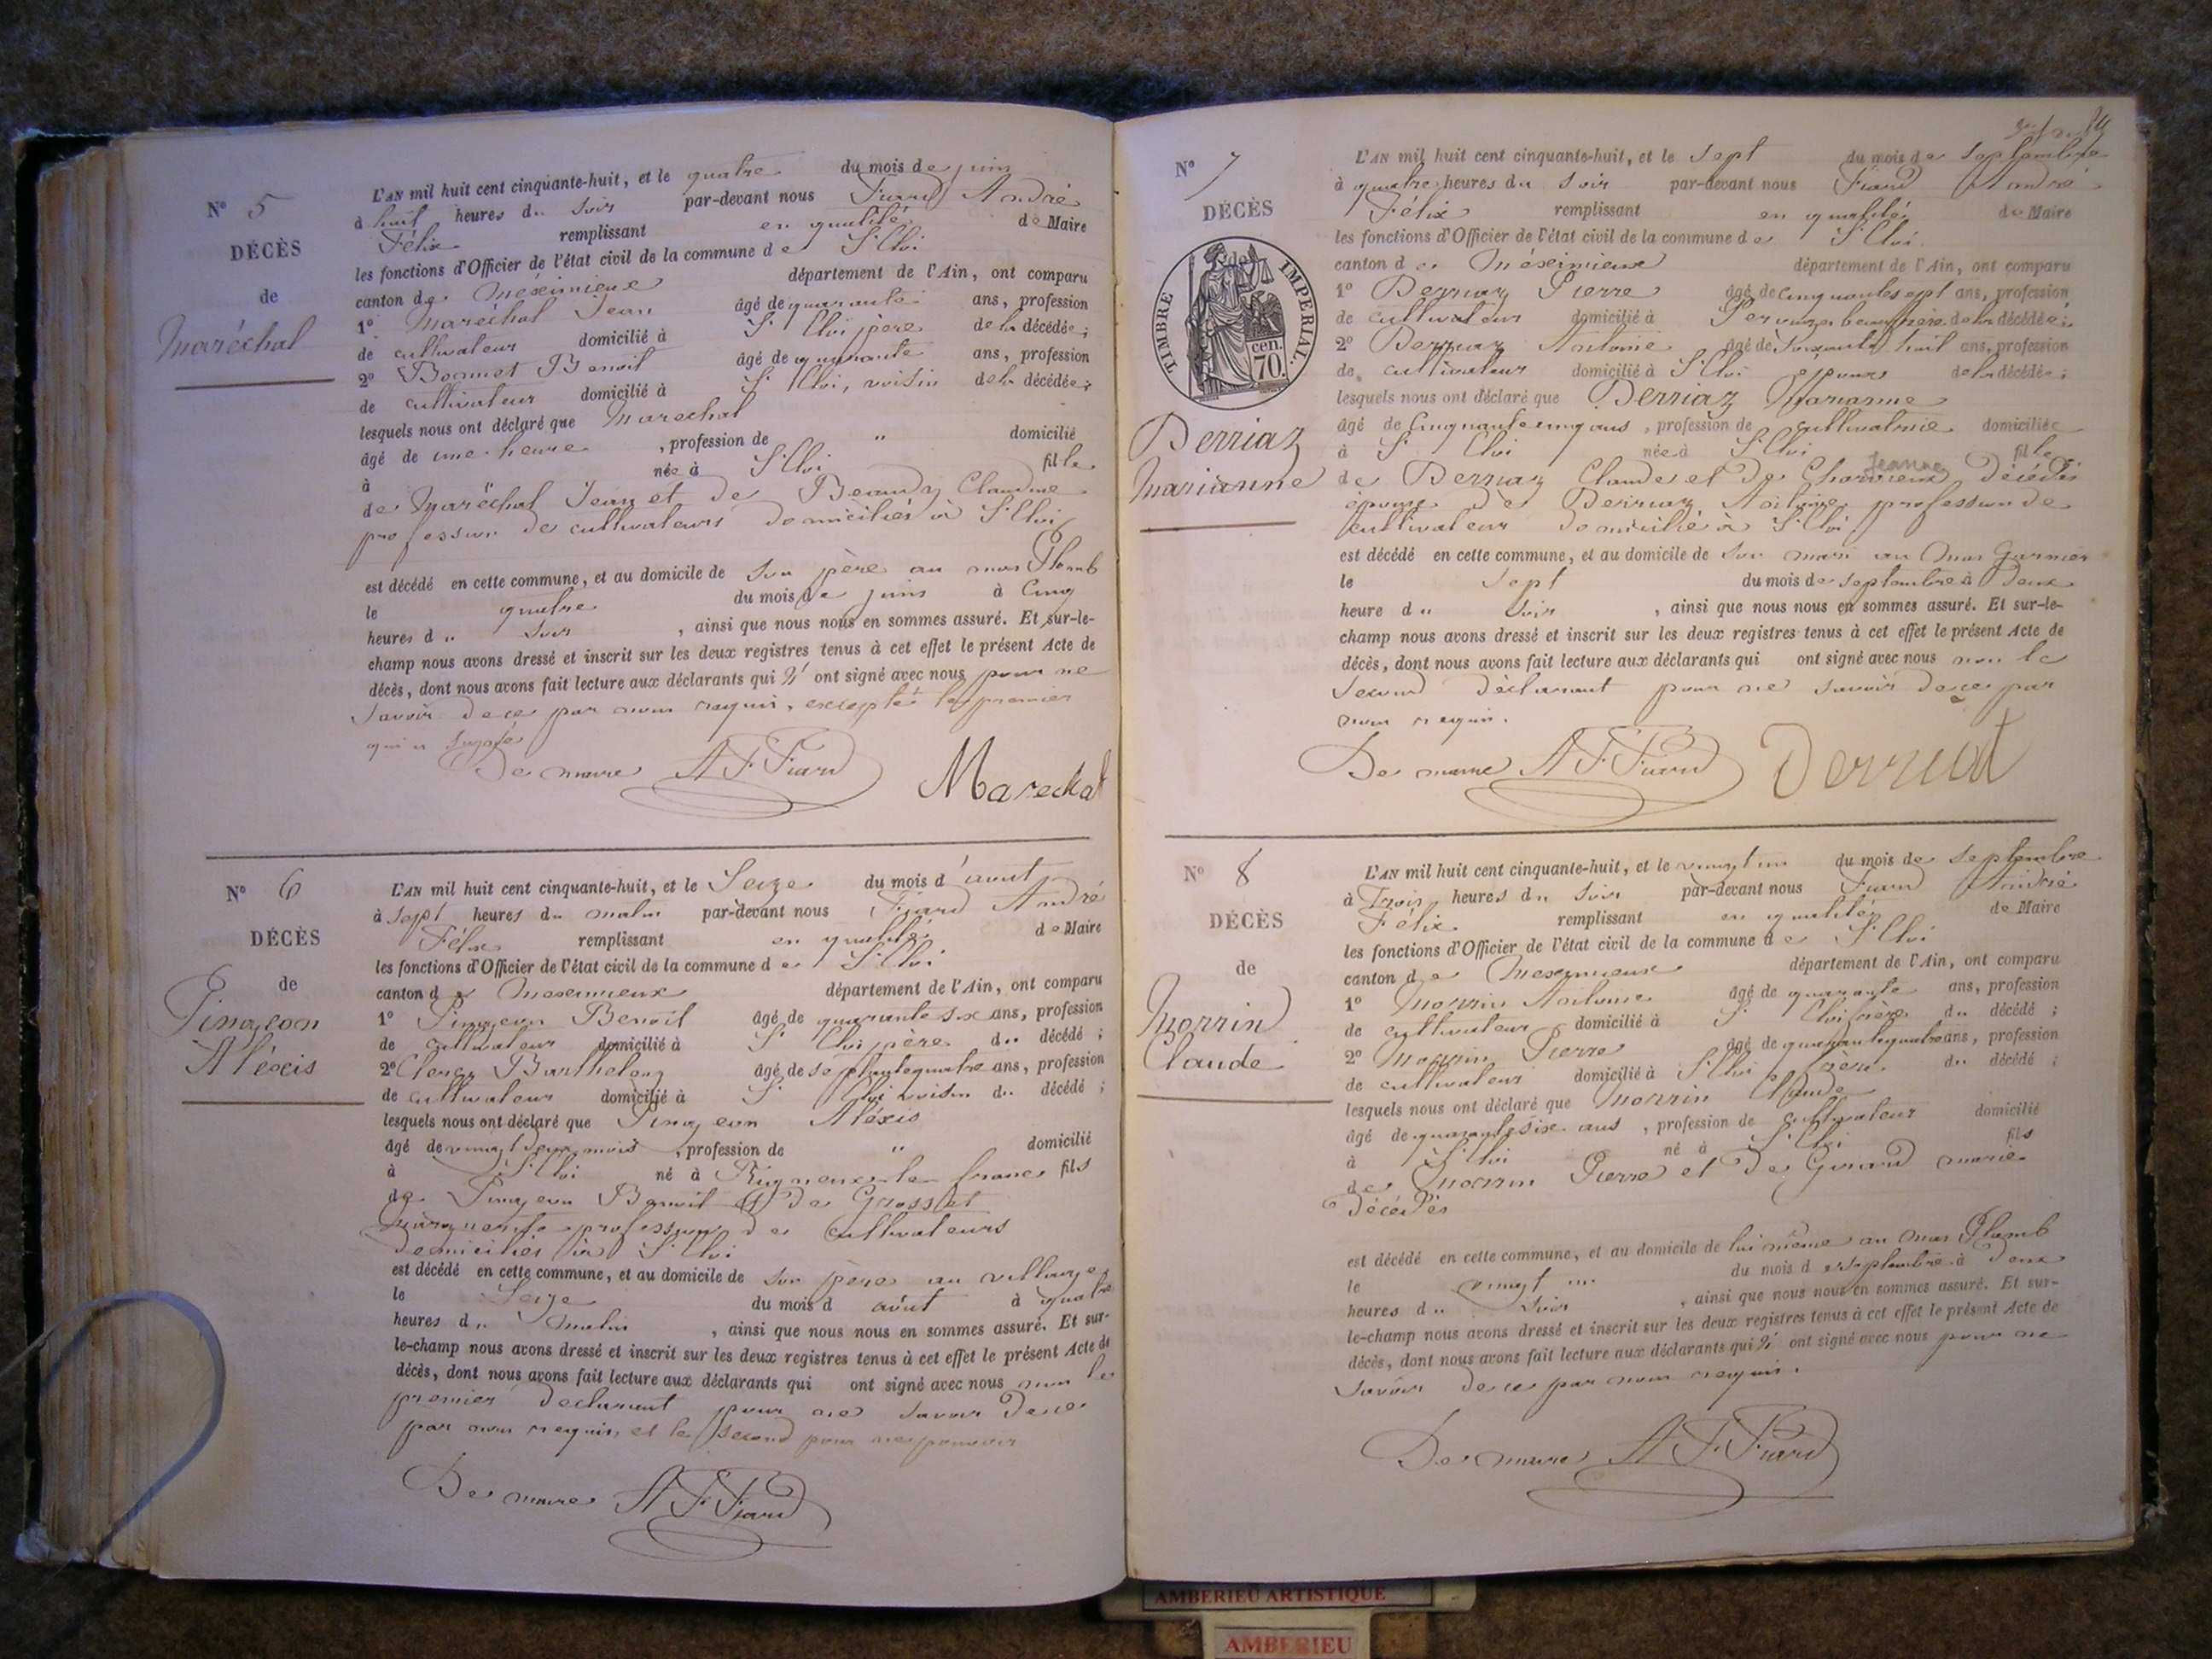 N° 5
DÉCÈS
de
Maréchal
L'AN mil huit cent cinquante-huit, et le quatre du mois de juin
à huit heures du soir par-devant nous Fiard André
Félix remplissant en qualité de Maire
les fonctions d'Officier de l'état civil de la commune de St Eloi
canton de Meximieux département de l'Ain, ont comparu
1° Maréchal Jean âgé de quarante ans, profession
de cultivateur domicilié à St Eloi père de la décédée;
2° Bonnet Benoit âgé de quarante ans, profession
de cultivateur domicilié à St Eloi, voisin de la décédée;
lesquels nous ont déclaré que Maréchal
âgé de une heure, profession de " domicilié
à née à St Eloi fille
de Maréchal Jean et de Beaudy Claudine
profession de cultivateurs domiciliés à St Eloi
est décédé en cette commune, et au domicile de son père au mas Plomb
le quatre du mois de juin à cinq
heures du soir, ainsi que nous nous en sommes assuré. Et sur-le-
champ nous avons dressé et inscrit sur les deux registres tenus à cet effet le présent Acte de
décès, dont nous avons fait lecture aux déclarants qui n' ont signé avec nous pour ne
savoir de ce par nous requis, excepté le premier
qui a signé
Le maire A F Fiard Marechal
N° 6
DÉCÈS
de
Pingeon
Aléxis
L'AN mil huit cent cinquante-huit, et le Seize du mois d'août
à sept heures du matin par-devant nous Fiard André
Félix remplissant en qualité de Maire
les fonctions d'Officier de l'état civil de la commune de St Eloi
canton de Meximieux département de l'Ain, ont comparu
1° Pingeon Benoit âgé de quarante six ans, profession
de cultivateur domicilié à St Eloi père du décédé;
2° Clerc Barthelemy âgé de septante quatre ans, profession
de cultivateur domicilié à St Eloi voisin du décédé;
lesquels nous ont déclaré que Pingeon Aléxis
âgé de vingt deux mois, profession de " domicilié
à St Eloi né à Rigneux le franc fils
de Pingeon Benoit et de Grosset
Marguerite profession de cultivateurs
domiciliés à St Eloi
est décédé en cette commune, et au domicile de son père au village
le Seize du mois d août à quatre
heures du matin, ainsi que nous nous en sommes assuré. Et sur-
le-champ nous avons dressé et inscrit sur les deux registres tenus à cet effet le présent Acte de
décès, dont nous avons fait lecture aux déclarants qui ont signé avec nous non le
premier déclarant pour ne savoir de ce
par nous requis, et le second pour ne pouvoir
Le maire A F Fiard
N° 7
DÉCÈS
de
TIMBRE IMPERIAL.
70. cen.
Derriaz
Marianne
L'AN mil huit cent cinquante-huit, et le sept du mois de septembre
à quatre heures du soir par-devant nous Fiard André
Félix remplissant en qualité de Maire
les fonctions d'Officier de l'état civil de la commune de St Eloi
canton de Méximieux département de l'Ain, ont comparu
1° Derriaz Pierre âgé de cinquante sept ans, profession
de cultivateur domicilié à Perouges beau frère de la décédée;
2° Derriaz Antoine âgé de soixante huit ans, profession
de cultivateur domicilié à St Eloi époux de la décédée;
lesquels nous ont déclaré que Derriaz Marianne
âgé de cinquante cinq ans, profession de cultivatrice domiciliée
à St Eloi née à St Eloi fille
Jeanne
de Derriaz Claude et de Charvieux décédés
épouse de Derriaz Antoine profession de
cultivateur domicilié à St Eloi
est décédé en cette commune, et au domicile de son mari au mas Garnier
le sept du mois de septembre à deux
heure du soir, ainsi que nous nous en sommes assuré. Et sur-le-
champ nous avons dressé et inscrit sur les deux registres tenus à cet effet le présent Acte de
décès, dont nous avons fait lecture aux déclarants qui ont signé avec nous non le
second déclarant pour ne savoir de ce par
nous requis.
Le maire A F Fiard Derriat
N° 8
DÉCÈS
de
Morrin
Claude
L'AN mil huit cent cinquante-huit, et le vingt un du mois de septembre
à Trois heures du soir par-devant nous Fiard André
Félix remplissant en qualité de Maire
les fonctions d'Officier de l'état civil de la commune de St Eloi
canton de Meximieux département de l'Ain, ont comparu
1° Morrin Antoine âgé de quarante ans, profession
de cultivateur domicilié à St Eloi frère du décédé;
2° Morrin Pierre âgé de quarante quatre ans, profession
de cultivateur domicilié à St Eloi frère du décédé;
lesquels nous ont déclaré que Morrin Claude
âgé de quarante six ans, profession de cultivateur domicilié
à St Eloi né à St Eloi fils
de Morrin Pierre et de Girard marie
décédés
est décédé en cette commune, et au domicile de lui même au mas Plomb
le vingt un du mois de septembre à deux
heures du soir, ainsi que nous nous en sommes assuré. Et sur-
le-champ nous avons dressé et inscrit sur les deux registres tenus à cet effet le présent Acte de
décès, dont nous avons fait lecture aux déclarants qui n' ont signé avec nous pour ne
savoir de ce par nous requis.
Le maire A F Fiard
AMBERIEU ARTISTIQUE
AMBERIEU